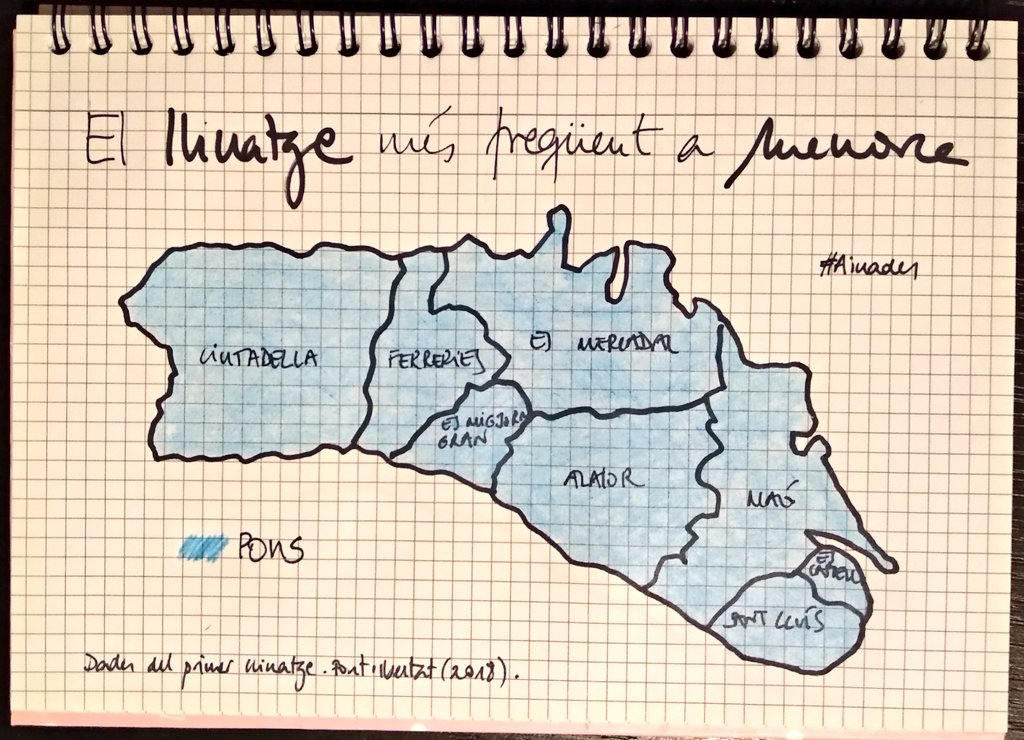 El llinatge més freqüent a Menorca
#Ainades
CIUTADELLA
FERRERIES
ES MERCADAL
ES MIGJORN
GRAN
ALAIOR
MAÓ
ES
CASTELL
SANT LLUÍS
PONS
Dades del primer llinatge. Font: Ibestat (2018).